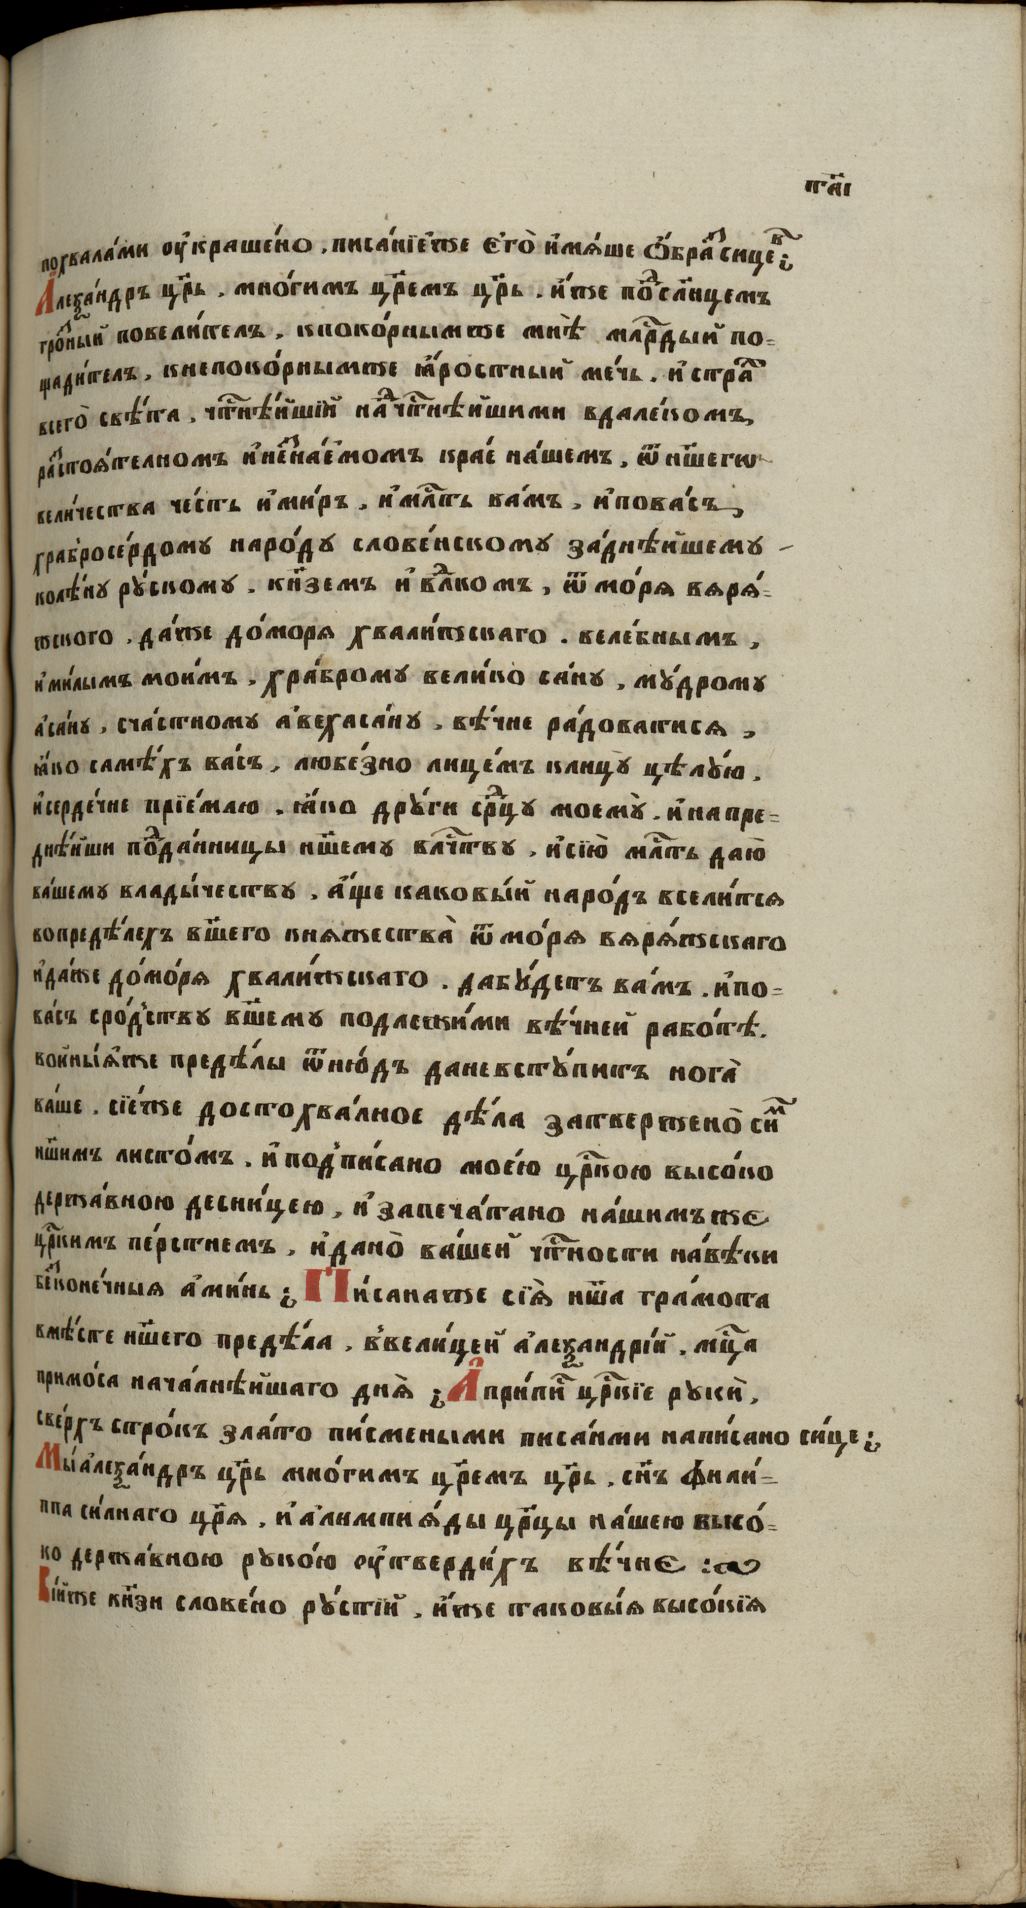 таі
похвала́ми оу҆краше́но . писа́ние́же є҆го̀ и҆мѧ́ше ѻ҆́браⷥ҇ сицеⷡ҇ ;
А҆леѯа́ндръ цр҃ь . мно́гимъ цр҃емъ цр҃ь . и҆́же поⷣсл҃нцемъ
гро́ⷥный повели́тель . кпоко́рнымже мнѣ̀ млⷭ҇рдый по=
щади́тель . кнепоко́рнымже ꙗ҆́ростный ме́чь . и҆ стра́ⷯ
всего̀ свѣ́та . чтⷭ҇нѣ́йшїй наⷣчтⷭ҇нѣ́йшими вдале́комъ,
раⷥстоѧ́телномъ и҆неⷥнае́момъ крае́ на́шемъ . ѿ нш҃егѡ
вели́чества че́сть и҆ми́ръ . и҆млⷭ҇ть ва́мъ . и҆пова́съ,
храбросе́рдому наро́ду слове́нскому за́днѣйшему
колѣ́ну ру́скому . кн҃земъ и҆ влⷣкомъ , ѿ мо́рѧ вѧрѧ́=
жского . да́же до́морѧ хвали́жскаго . веле́бнымъ ,
и҆ми́лымъ мои́мъ . хра́брому вели́ко са́ну , му́дрому
а҆са́ну , сча́стному а҆веха́са́ну . вѣ́чне ра́доватисѧ ,
ꙗ҆́ко самѣ́хъ ва́съ , любе́зно лице́мъ клицу̀ цѣлу́ю .
и҆серде́чне прїе́млю . ꙗ҆́ко дру́ги срⷣцу моему̀ . и҆напре=
днѣ́йши поⷣда́нницы нш҃ему влⷭ҇чтву . и҆сїю̀ млⷭ҇ть даю̀
ва́шему влады́честву . а҆́ще каковы́й наро́дъ всели́тсѧ
вопредѣ́лехъ вш҃его кнѧжества̀ ѿ мо́рѧ вѧрѧ́жскаго
и҆да́же до́мо́рѧ хвали́жскаго . дабу́детъ ва́мъ . и҆по=
ва́съ сро́дству вш҃ему подлежи́ми вѣ́чней рабо́тѣ .
вои́ныѧ҆́же предѣ́лы ѿню́дъ даневсту́питъ нога̀
ва́ше . сїе́же достохва́лное дѣ́ла затвержено̀ си́ⷨ
нш҃имъ листо́мъ . и҆ подпи́сано мое́ю црⷭ҇кою высо́ко
держа́вною десни́цею , и҆ запеча́тано на́шимъ же
црⷭ҇кимъ пе́рстнемъ . и҆дано̀ ва́шей чтⷭ҇ности на́вѣки
беⷥконе́чныѧ а҆ми́нь ; Пи́санаже сїѧ̀ нш҃а гра́мота
вмѣ́сте нш҃его предѣ́ла . ввели́цей а҆леѯандрі́й . мцⷭ҇а
примо́са нача́лнѣйшаго днѧ̀ ; А҆ припиⷭ҇ црⷭ҇кїе руки̾ ,
све́рхъ стро́къ зла́то пи́смеными писа́ими напи́сано си́це ;
Мы́ а҆леѯа́ндръ цр҃ь мно́гимъ цр҃емъ цр҃ь . сн҃ъ фили́=
ппа си́лнаго цр҃ѧ . и҆ а҆лимпиѧ́ды цр҃цы на́шею высо́=
ко держа́вною руко́ю оу҆тверди́хъ вѣ́чнє :
Ві́йже кн҃зи слове́но ру́стїй . и҆́же таковы́ѧ высо́кїѧ